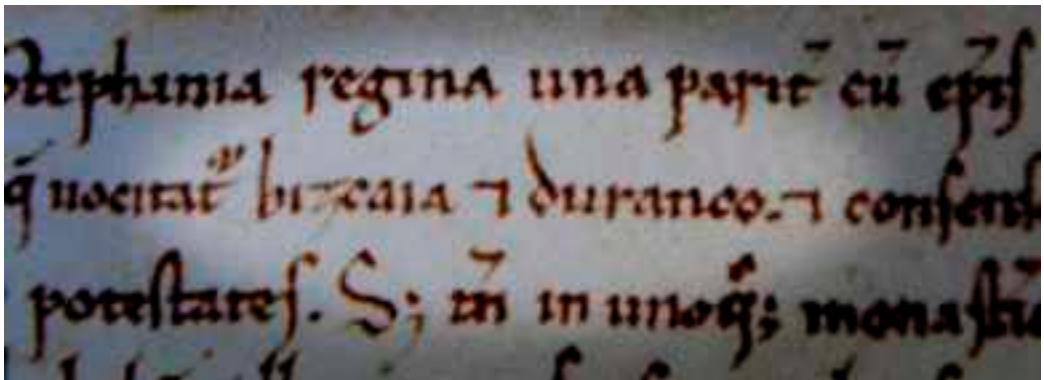 Stephania regina una parit̄ cū ep̄is
q̄ uocitat᷑ bizcaia ⁊ duranco. ⁊ consens
potestates. S; tn̄ in unoq̄; monasti